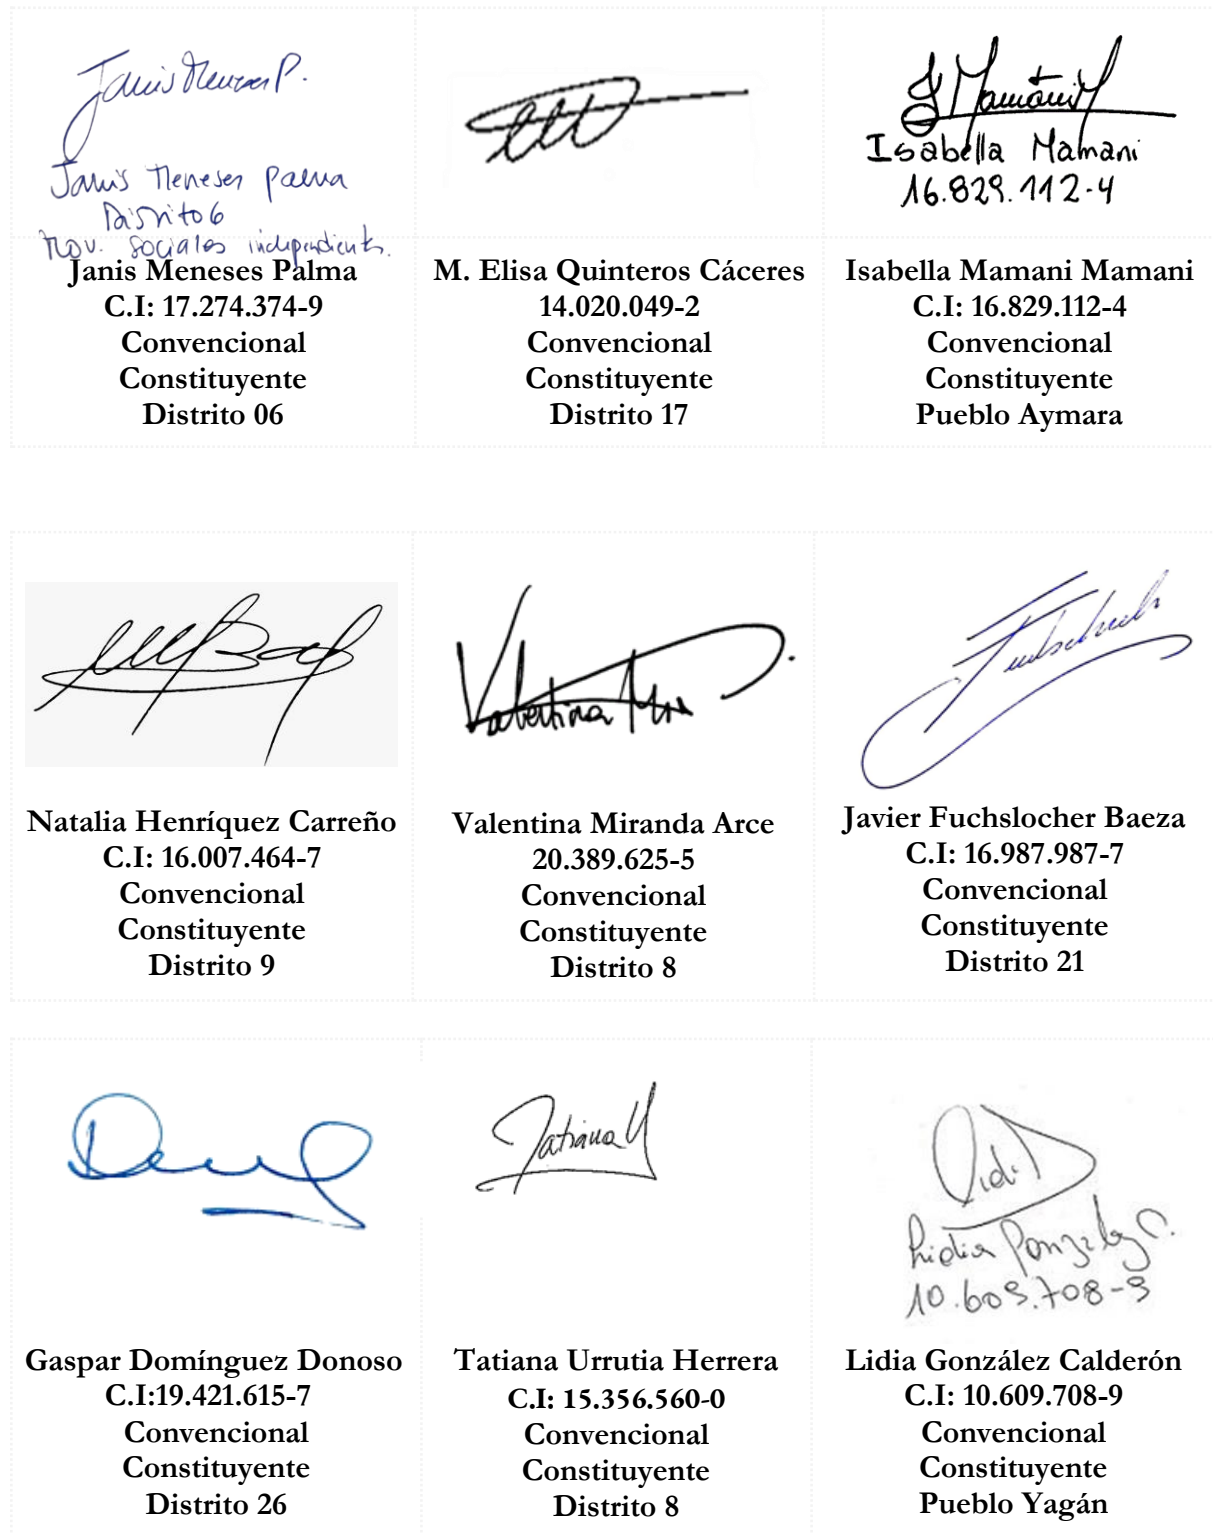 Janis Meneses P.
Janis Meneses Palma
Distrito 6
Mov. Sociales independientes.
Janis Meneses Palma
C.I: 17.274.374-9
Convencional
Constituyente
Distrito 06
M. Elisa Quinteros Cáceres
14.020.049-2
Convencional
Constituyente
Distrito 17
I Mamani M
Isabella Mamani
16.829.112-4
Isabella Mamani Mamani
C.I: 16.829.112-4
Convencional
Constituyente
Pueblo Aymara
Natalia Henríquez Carreño
C.I: 16.007.464-7
Convencional
Constituyente
Distrito 9
Valentina Mir
Valentina Miranda Arce
20.389.625-5
Convencional
Constituyente
Distrito 8
Javier Fuchslocher Baeza
C.I: 16.987.987-7
Convencional
Constituyente
Distrito 21
Gaspar Domínguez Donoso
C.I:19.421.615-7
Convencional
Constituyente
Distrito 26
Tatiana U
Tatiana Urrutia Herrera
C.I: 15.356.560-0
Convencional
Constituyente
Distrito 8
Lidia
Lidia González C.
10.609.708-9
Lidia González Calderón
C.I: 10.609.708-9
Convencional
Constituyente
Pueblo Yagán